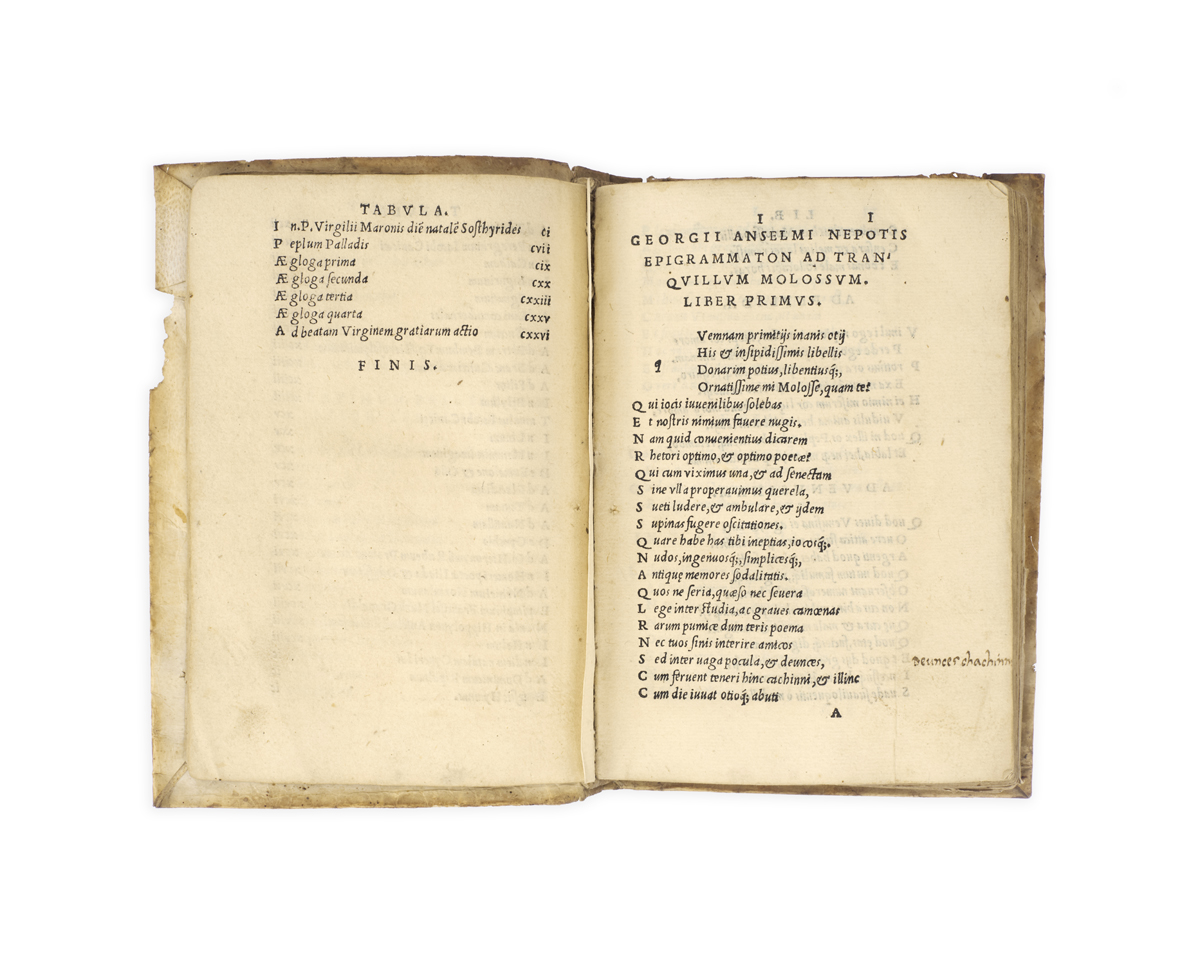 TABVLA.
I n.P.Virgilii Maronis diē natalē Sosthyrides ci
P eplum Palladis cvii
Æ gloga prima cix
Æ gloga secunda cxx
Æ gloga tertia cxxiii
Æ gloga quarta cxxv
A d beatam Virginem gratiarum actio cxxvi
FINIS.
I I
GEORGII ANSELMI NEPOTIS
EPIGRAMMATON AD TRAN-
QVILLVM MOLOSSVM.
LIBER PRIMVS.
Vemnam primitijs inanis otij
His & insipidissimis libellis
q Donarim potius, libentiusq;,
Ornatissime mi Molosse, quam te?
Q ui iocis iuuenilibus solebas
E t nostris nimium fauere nugis.
N am quid conuenientius dicarem
R hetori optimo, & optimo poetæ?
Q ui cum viximus una, & ad senectam
S ine vlla properauimus querela,
S ueti ludere, & ambulare, & ydem
S upinas fugere oscitationes.
Q uare habe has tibi ineptias, iocosq;.
N udos, ingenuosq;, simplicesq;,
A ntiquę memores sodalitatis.
Q uos ne seria, quæso nec seuera
L ege inter studia, ac graues camœnas
R arum pumice dum teris poema
N ec tuos sinis interire amicos
S ed inter uaga pocula, & deunces,
C um feruent teneri hinc cachinni, & illinc
C um die iuuat otioq; abuti
A
Deunces chachinn